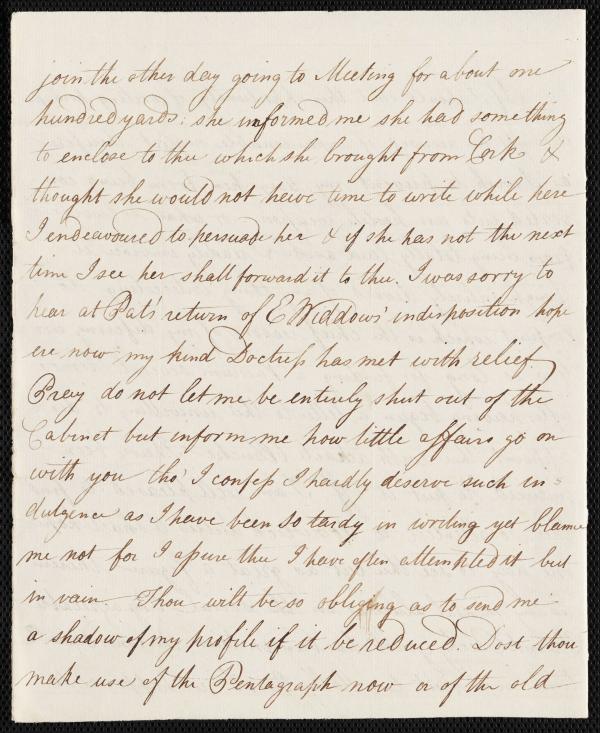 join the other day going to Meeting for about one
hundred yards: she informed me she had something
to enclose to thee which she brought from Cork &
thought she would not have time to write while here
I endeavoured to persuade her & if she has not the next
time I see her shall forward it to thee. I was sorry to
hear at Pat's return of E Widdows' indisposition hope
ere now my kind Doctress has met with relief
Pray do not let me be entirely shut out of the
Cabinet but inform me how little affairs go on
with you tho' I confess I hardly deserve such in=
dulgence as I have been so tardy in writing yet blame
me not for I assure thee I have often attempted it but
in vain Thou wilt be so obliging as to send me
a shadow of my profile if it be reduced. Dost thou
make use of the Pentagraph now or of the old